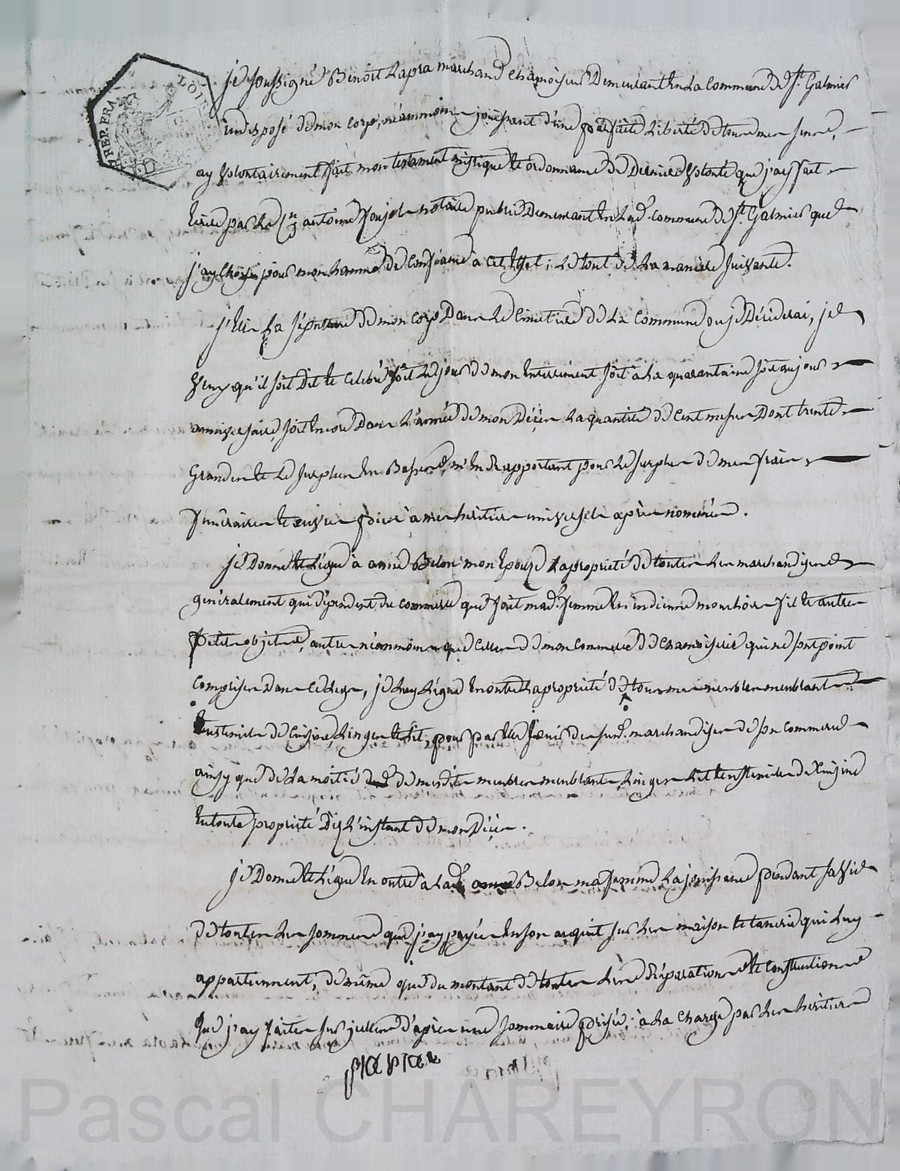 je soussigné Benoit Lapra marchand chamoiseur Demeurant en La Commune de St. Galmier
indisposé de mon corps, néanmoins jouissant d'une parfaite Liberté de tous mes sens,
ay volontairement fait mon testament mistique et ordonnance de Derniere volonté que j'ay fait
Ecrire par le Cn antoine notaire public Demeurant en Lad. commune de St Galmier que
j'ay choisi pour mon homme de Confiance a cet effet; le tout de La maniere suivante.
j'Elis La sépulture de mon corps Dans Le Cimetiere de La Commune ou je Décéderai, je
veux qu'il soit Dit et Célébré soit Le jour de mon Enterrement soit à La quarantaine soit au jour
anniversaire, soit encore Dans L'année de mon Décès La quantité de Cent messes Dont trente
Grandes et Le surplus en Basses, m'en rapportant pour Le surplus de mes frais
funéraires et œuvres pies à mes heritiers universels après nommés.
je Donne et Légue à anne Belon mon Epouse La propriété de toutes Les marchandises
généralement qui dépendent du commerce que fait mad. femme en indienne mouchoirs fil et autres
petits objets, autres néanmoins que Celles de mon Commerce de Chamoiserie qui ne sont point
Comprises Dans Ce Legs, je Luy Légue en outre La propriété de tous mes meubles meublants
ustensiles de Cuisine, Linges et Lit, pour par elle jouir des susd. marchandises de son commerce
ainsy que de La moitié de mesdits meubles meublants Linges Lit et ustensiles de Cuisine
en toute propriété Dès L'instant de mon Décès.
je Donne et Légue En outre à Lad. anne Belon ma femme La jouissance pendant sa vie
de toutes Les sommes que j'ay payées en son acquit sur Les maison et tannerie qui Luy
appartiennent, de même que du montant de toutes Les réparations et Constructions
que j'ay faites sur icelles d'après une sommaire prisée; à La Charge par Les heritiers
Pascal CHAREYRON